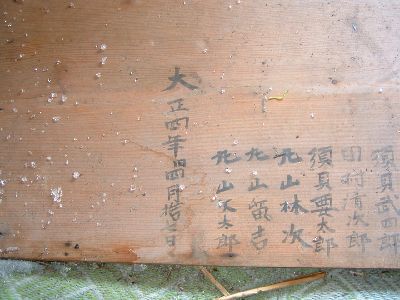 須貝武四郎
田村清次郎
須貝要太郎
丸山林次
丸山 吉
丸山 太郎
大正四年 四月拾七日